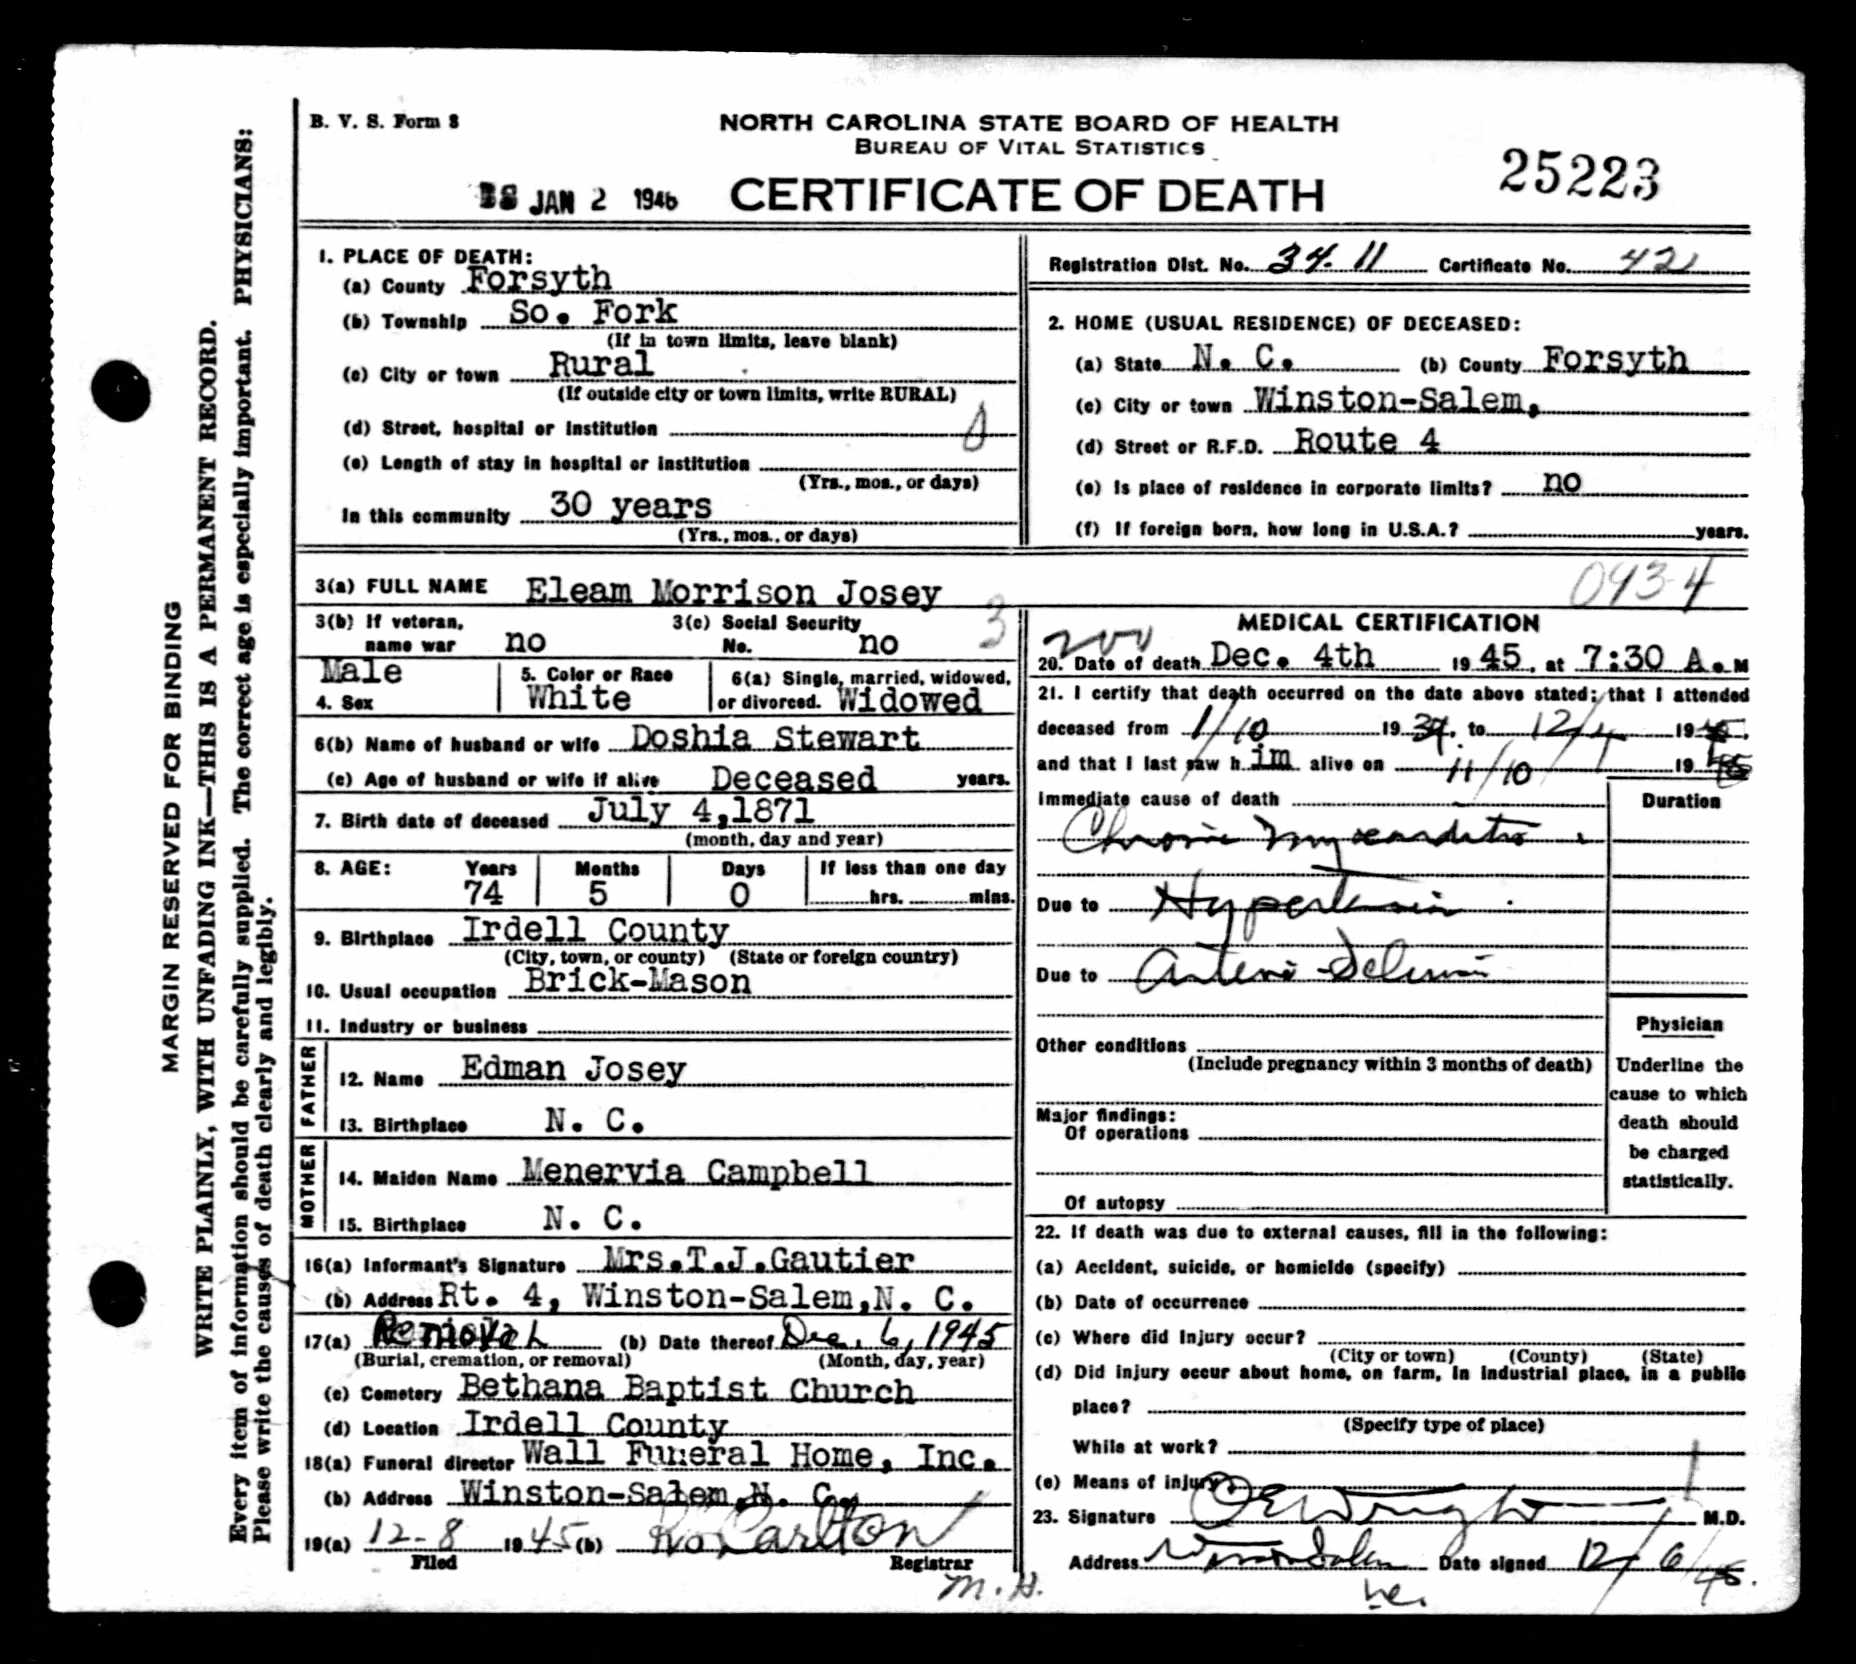 B. V. S. Form 8
NORTH CAROLINA STATE BOARD OF HEALTH
BUREAU OF VITAL STATISTICS
JAN 2 1946
CERTIFICATE OF DEATH
25223
1. PLACE OF DEATH:
(a) County Forsyth
(b) Township So. Fork
(If in town limits, leave blank)
(c) City or town Rural
(If outside city or town limits, write RURAL)
(d) Street, hospital or institution
(e) Length of stay in hospital or institution
(Yrs., mos., or days)
In this community 30 years
(Yrs., mos., or days)
Registration Dist. No. 34-11 Certificate No. 421
2. HOME (USUAL RESIDENCE) OF DECEASED:
(a) State N. C. (b) County Forsyth
(c) City or town Winston-Salem,
(d) Street or R.F.D. Route 4
(e) Is place of residence in corporate limits? no
(f) If foreign born, how long in U.S.A.? years.
3(a) FULL NAME Eleam Morrison Josey
0934
3(b) If veteran, name war no
3(c) Social Security No. no
3
4. Sex Male
5. Color or Race White
6(a) Single, married, widowed, or divorced. Widowed
6(b) Name of husband or wife Doshia Stewart
(c) Age of husband or wife if alive Deceased years.
7. Birth date of deceased July 4,1871
(month, day and year)
8. AGE: Years Months Days If less than one day
74 5 0 hrs. mins.
9. Birthplace Irdell County
(City, town, or county) (State or foreign country)
10. Usual occupation Brick-Mason
11. Industry or business
FATHER
12. Name Edman Josey
13. Birthplace N. C.
MOTHER
14. Maiden Name Menervia Campbell
15. Birthplace N. C.
16(a) Informant's Signature Mrs.T.J.Gautier
(b) Address Rt. 4, Winston-Salem,N. C.
17(a) Removal (b) Date thereof Dec. 6, 1945
(Burial, cremation, or removal) (Month, day, year)
(c) Cemetery Bethana Baptist Church
(d) Location Irdell County
18(a) Funeral director Wall Funeral Home, Inc.
(b) Address Winston-Salem,N. C.
19(a) 12-8 1945 (b) Carlton
Filed Registrar
M. H.
MEDICAL CERTIFICATION
200
20. Date of death Dec. 4th 1945, at 7:30 A.M
21. I certify that death occurred on the date above stated; that I attended
deceased from 1/10 19 , to 12/4 1945,
and that I last saw him alive on 11/10 1945
Immediate cause of death
Duration
Chronic Myocarditis
Due to Hypertension
Due to Arterio-Sclerosis
Other conditions
(Include pregnancy within 3 months of death)
Major findings:
Of operations
Of autopsy
Physician
Underline the
cause to which
death should
be charged
statistically.
22. If death was due to external causes, fill in the following:
(a) Accident, suicide, or homicide (specify)
(b) Date of occurrence
(c) Where did injury occur?
(City or town) (County) (State)
(d) Did injury occur about home, on farm, in industrial place, in a public
place?
(Specify type of place)
While at work?
(e) Means of injury
23. Signature O E Wright M.D.
Address Winston Salem Date signed 12/6/45.
n.c.
MARGIN RESERVED FOR BINDING
WRITE PLAINLY, WITH UNFADING INK—THIS IS A PERMANENT RECORD.
Every item of information should be carefully supplied. The correct age is especially important. PHYSICIANS:
Please write the causes of death clearly and legibly.